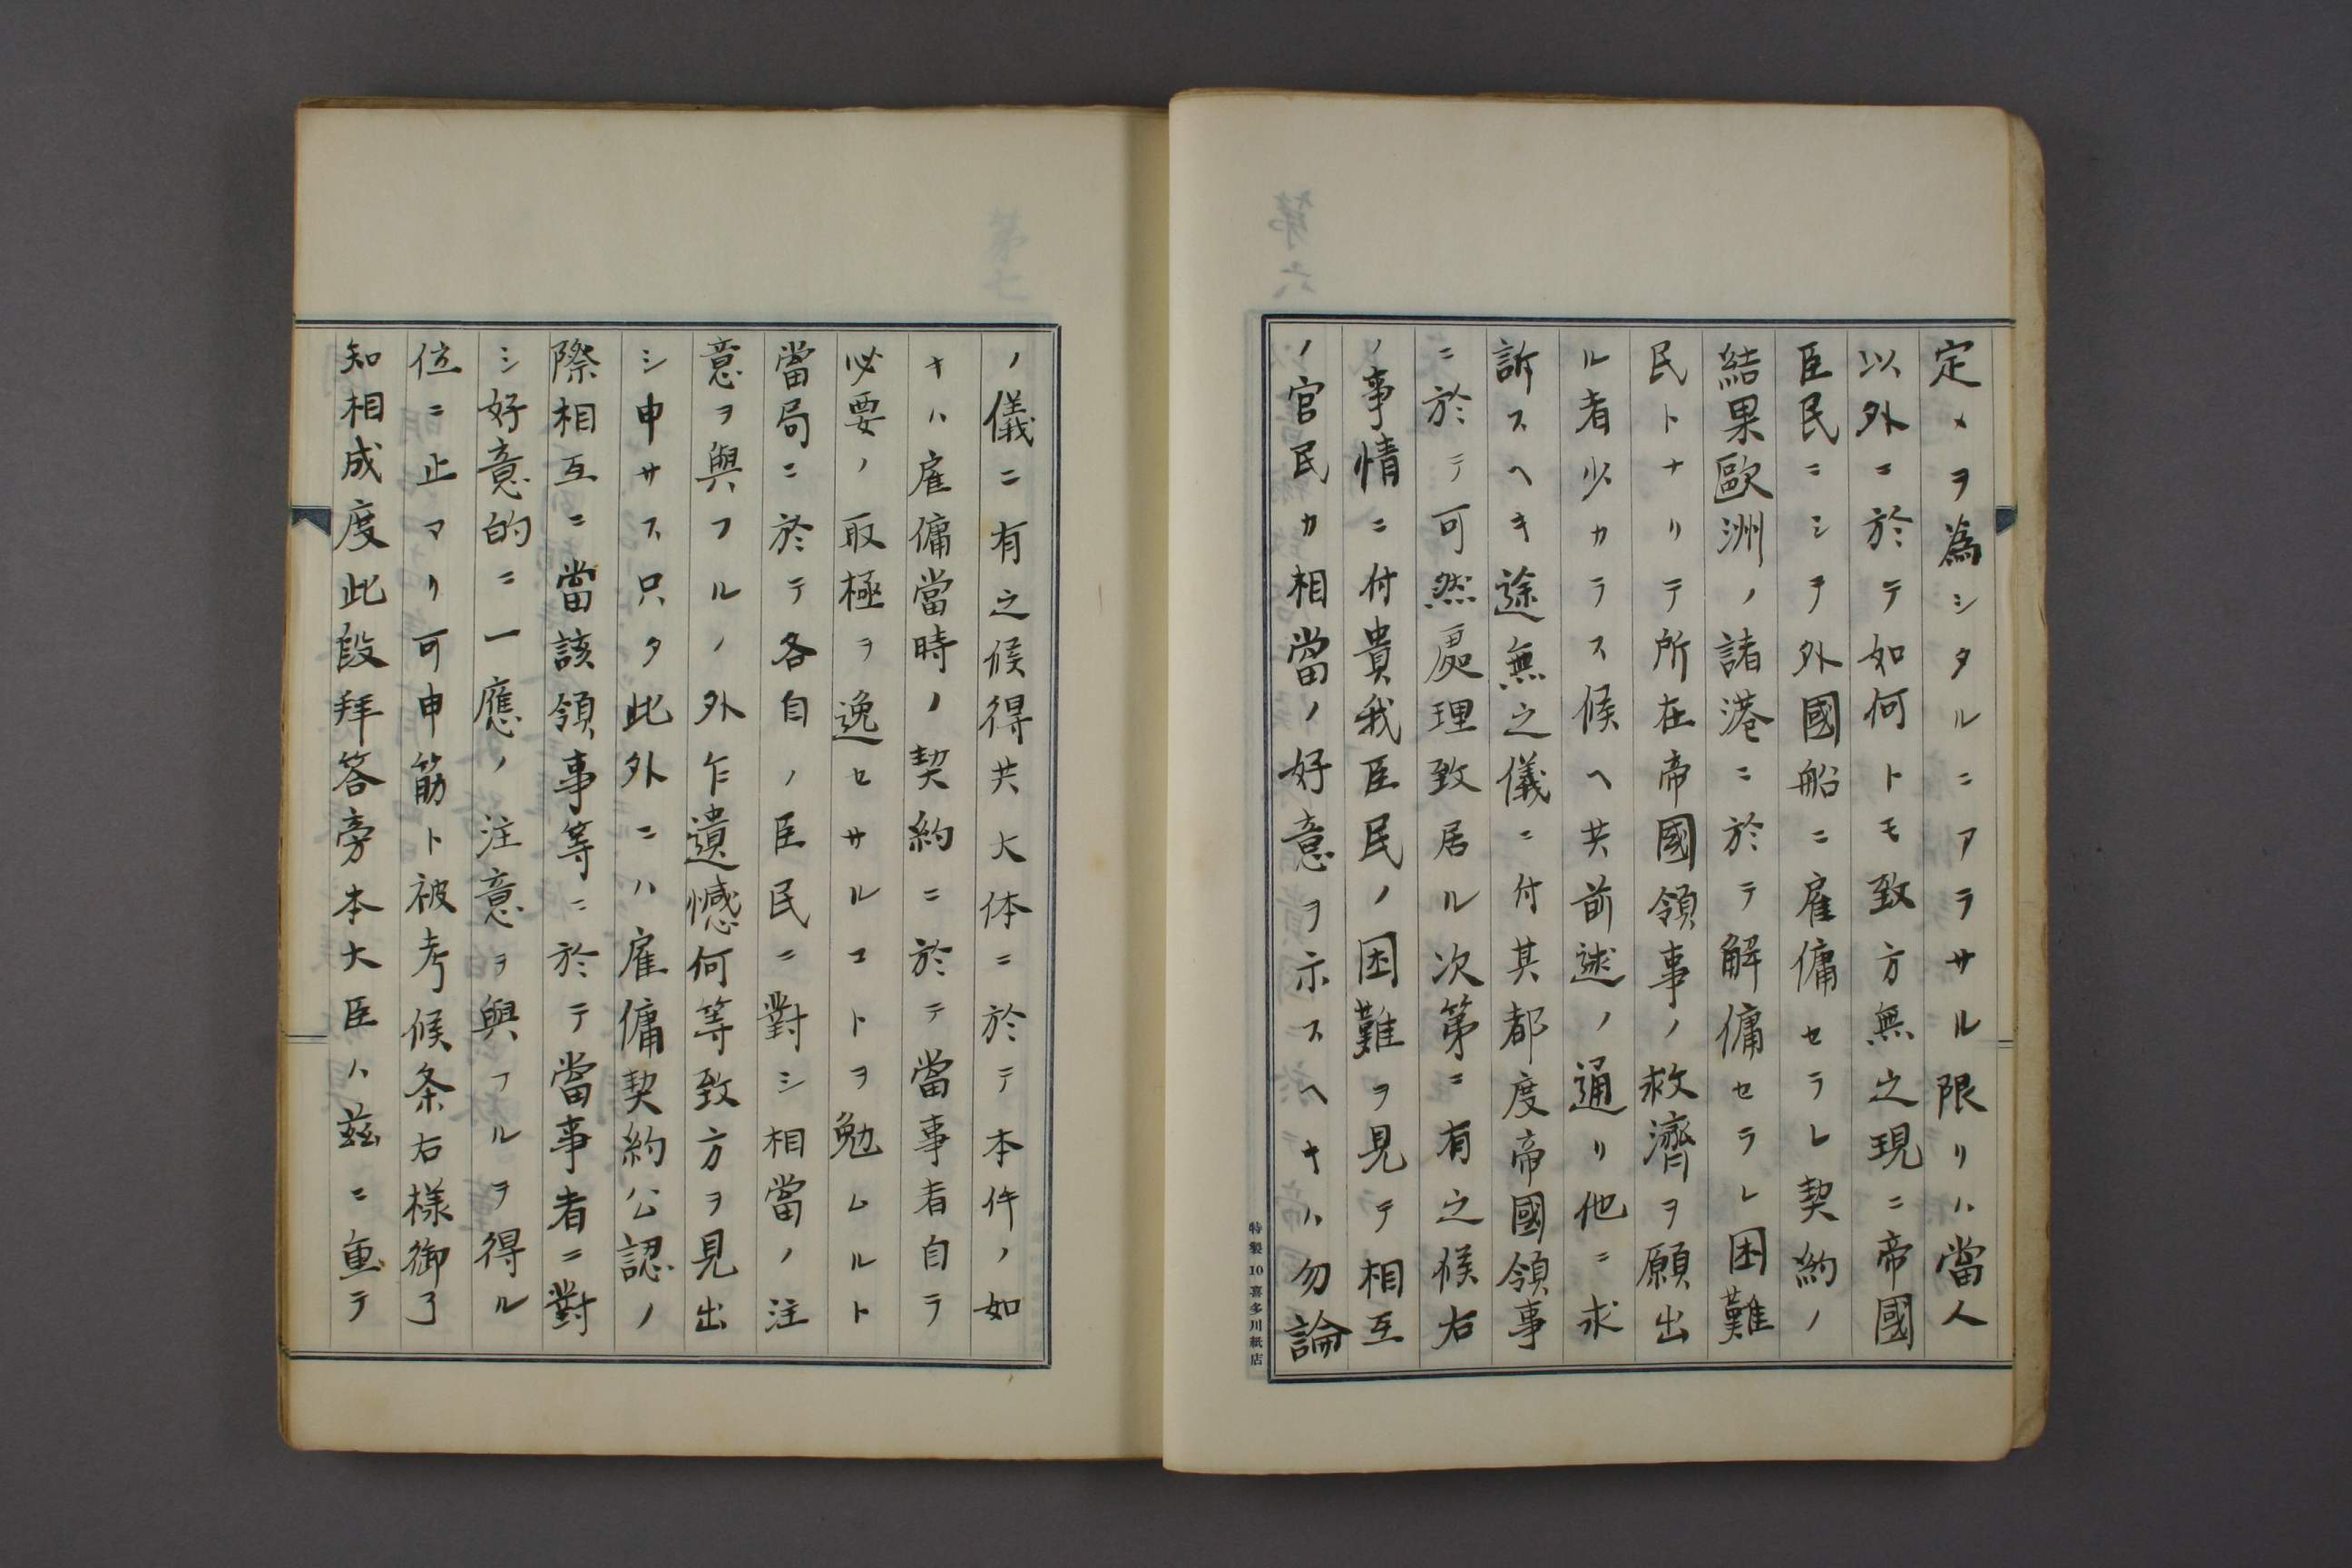 定メヲ為シタルニアラサル限リハ當人
以外ニ於テ如何トモ致方無之現ニ帝國
臣民ニシテ外國船ニ雇傭セラレ契約ノ
結果歐洲ノ諸港ニ於テ解傭セラレ困難
民トナリテ所在帝國領事ノ救濟ヲ願出
ル者少カラス候ヘ共前述ノ通リ他ニ求
訴スヘキ途無之儀ニ付其都度帝國領事
ニ於テ可然處理致居ル次第ニ有之候右
ノ事情ニ付貴我臣民ノ困難ヲ見テ相互
ノ官民カ相當ノ好意ヲ示スヘキハ勿論
特製10喜多川紙店
ノ儀ニ有之候得共大体ニ於テ本件ノ如
キハ雇傭當時ノ契約ニ於テ當事者自ラ
必要ノ取極ヲ逸セサルコトヲ勉ムルト
當局ニ於テ各自ノ臣民ニ對シ相當ノ注
意ヲ與フルノ外乍遺憾何等致方ヲ見出
シ申サス只タ此外ニハ雇傭契約公認ノ
際相互ニ當該領事等ニ於テ當事者ニ對
シ好意的ニ一應ノ注意ヲ與フルヲ得ル
位ニ止マリ可申筋ト被考候条右様御了
知相成度此段拜答旁本大臣ハ茲ニ重テ
第六
第七